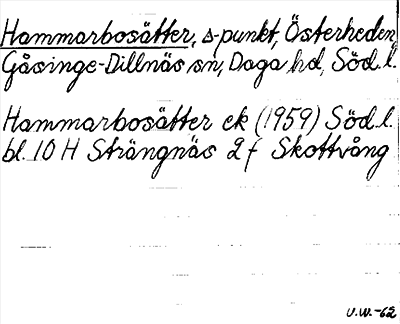 Hammarbosätter, s-punkt, Österheden,
Gåsinge-Dillnäs sn, Daga hd, Söd. l.
Hammarbosätter ek (1959) Söd. l.
bl. 10 H Strängnäs 2 f Skottvång
U.W.-62